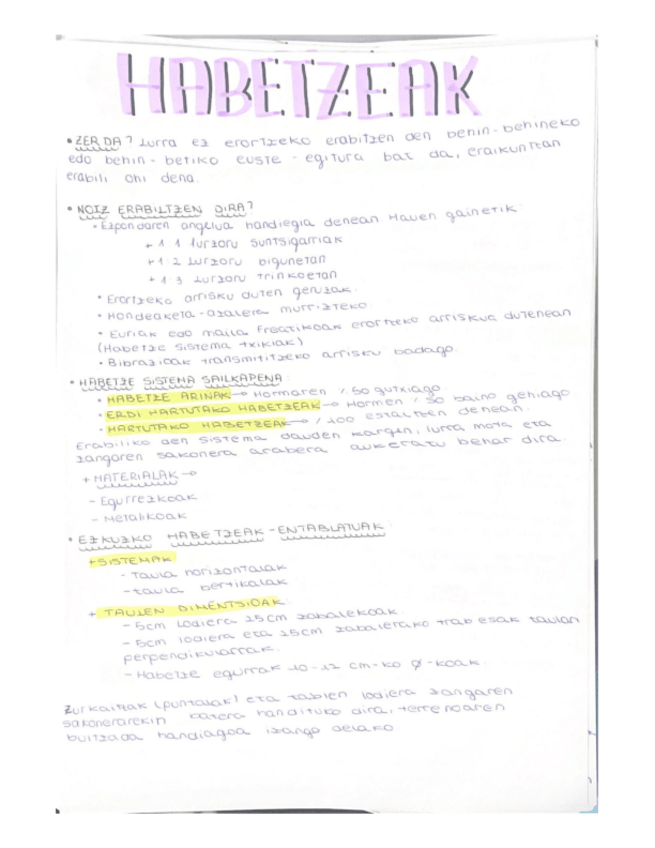 HABETZEAK
• ZER DA? Lurra ez erortzeko erabiltzen den behin-behineko
edo behin-betiko euste-egitura bat da, eraikuntzan
erabili ohi dena.
• NOIZ ERABILTZEN DIRA?
• Ezpondaren angelua handiegia denean hauen gainetik:
+ 1:1 lurzoru suntsigarriak
+ 1:2 lurzoru bigunetan
+ 1:3 lurzoru trinkoetan
• Erortzeko arrisku duten geruzak.
• Hondeaketa-azalera murrizteko.
• Euriak edo maila freatikoak erortzeko arriskua dutenean
(Habetze sistema txikiak)
• Bibrazioak transmititzeko arrisku badago.
• HABETZE SISTEMA SAILKAPENA:
• HABETZE ARINAK → Hormaren %50 gutxiago.
• ERDI HARTUTAKO HABETZEAK → Hormen %50 baino gehiago
• HARTUTAKO HABETZEAK → %100 estaltzen denean.
Erabiliko den sistema dauden kargen, lurra mota eta
zangaren sakonera arabera aukeratu behar dira.
+ MATERIALAK →
- Egurrezkoak
- Metalikoak
• EZKUZKO HABETZEAK - ENTABLATUAK
+ SISTEMAK
- Taula horizontalak
- taula bertikalak
+ TAULEN DIMENTSIOAK:
- 5cm lodiera 25cm zabalekoak.
- 5cm lodiera eta 25cm zabalerako trabesak taulan
perpendikularrak.
- Habetze egurrak 10-12 cm-ko Ø-koak.
Zurkaitzak (puntalak) eta tablen lodiera zangaren
sakonerarekin batera handituko dira, terrenoaren
bultzada handiagoa izango delako.